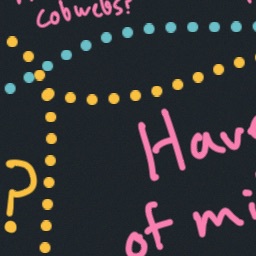 cobwebs?
?
Hav
of mi